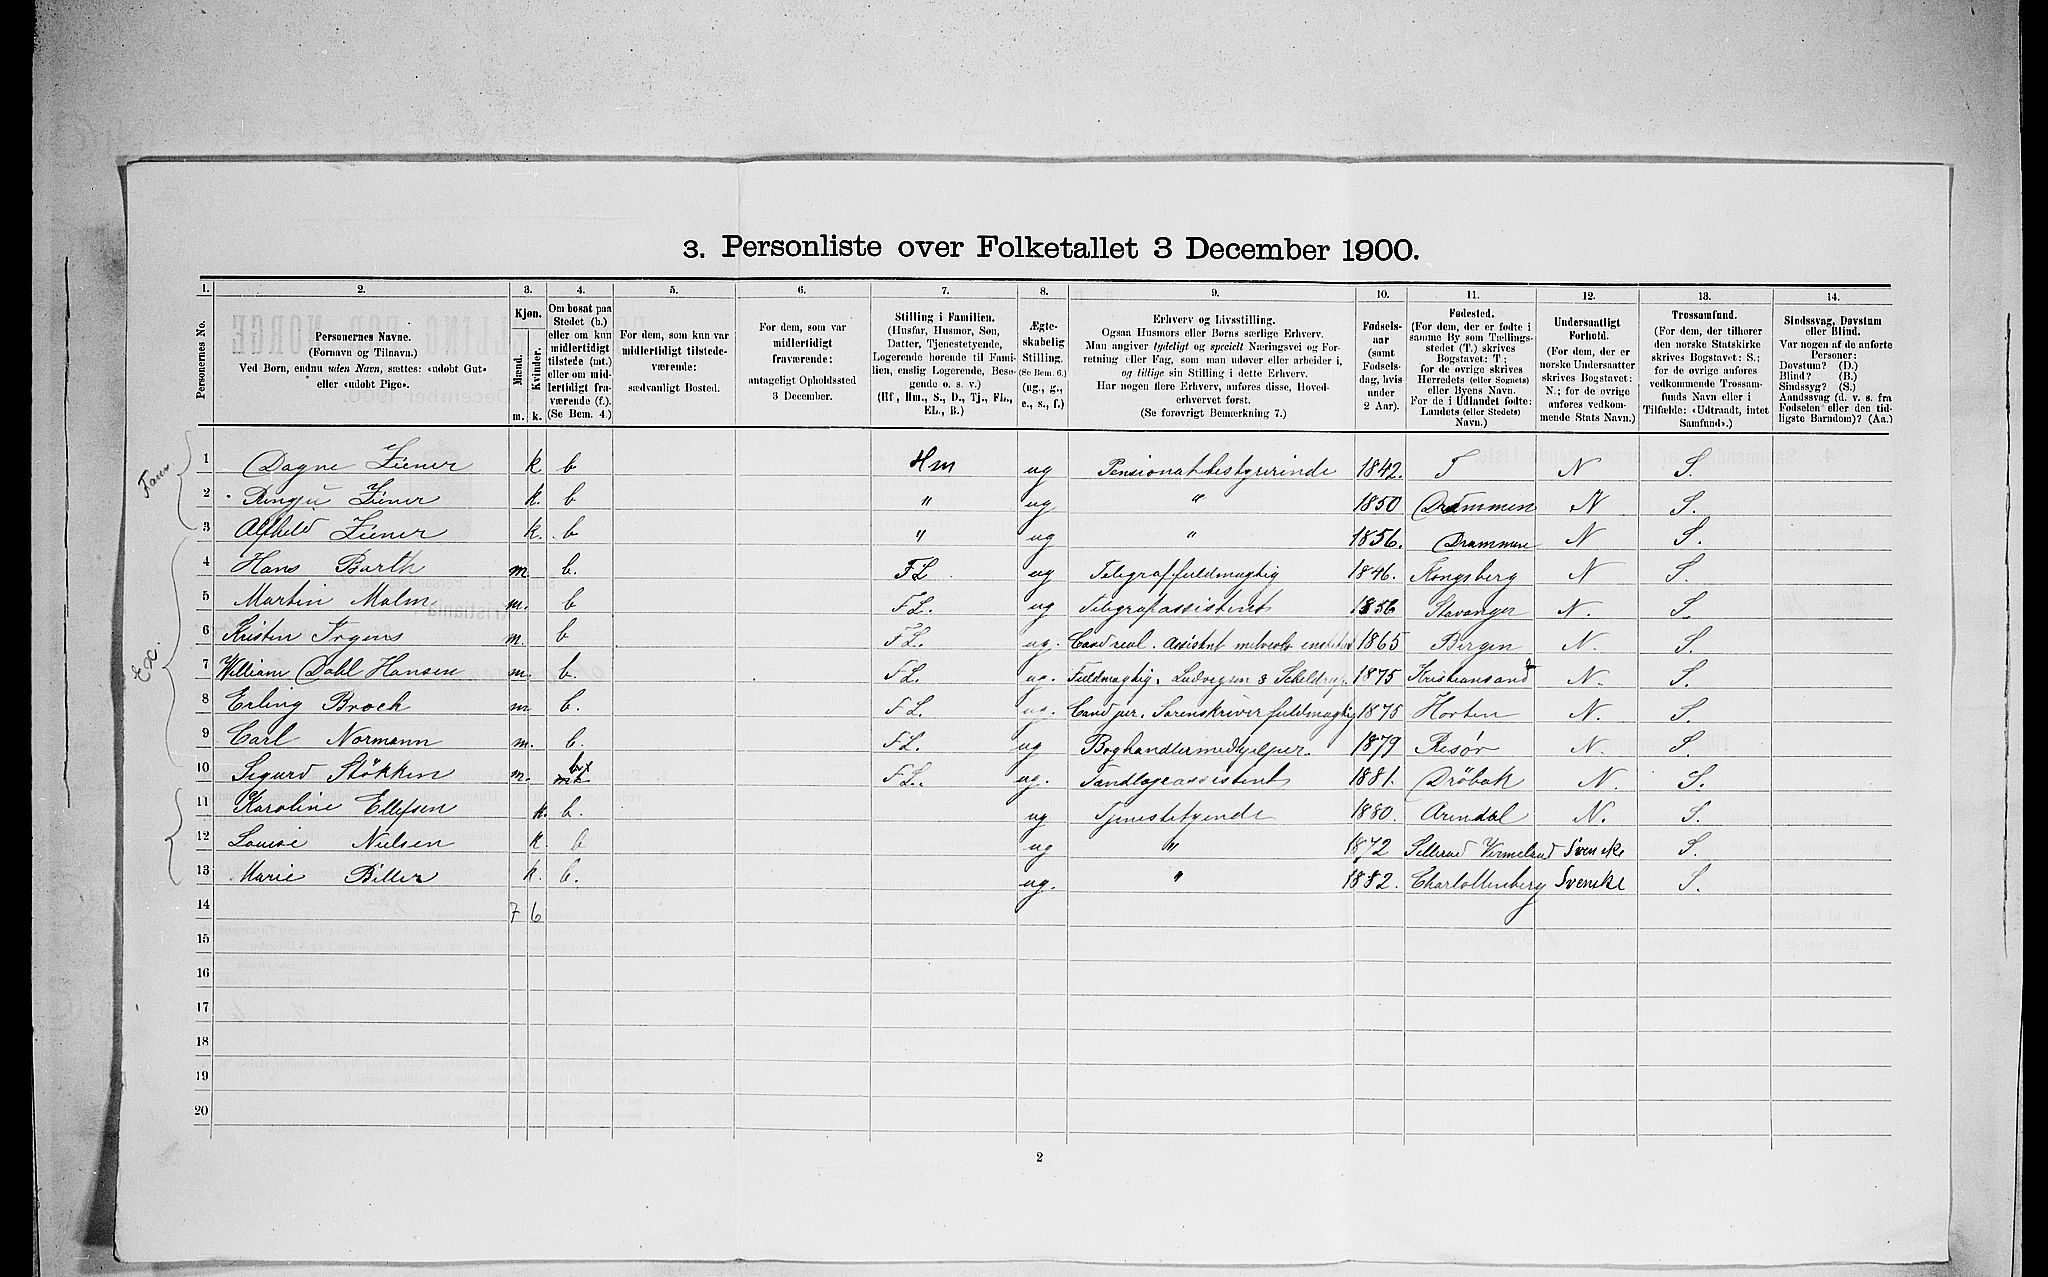 3. Personliste over Folketallet 3 December 1900.
1. 2. 3. 4. 5. 6. 7. 8. 9. 10. 11. 12. 13. 14.
Personernes No.
Personernes Navne.
(Fornavn og Tilnavn.)
Ved Børn, endnu uden Navn, sættes: «udøbt Gut»
eller «udøbt Pige».
Kjøn.
Mænd.
Kvinder.
m. k.
Om bosat paa
Stedet (b.)
eller om kun
midlertidigt
tilstede (mt.)
eller om mid-
lertidigt fra-
værende (f.).
(Se Bem. 4.)
For dem, som kun var
midlertidigt tilstede-
værende:
sædvanligt Bosted.
For dem, som var
midlertidigt
fraværende:
antageligt Opholdssted
3 December.
Stilling i Familien.
(Husfar, Husmor, Søn,
Datter, Tjenestetyende,
Logerende hørende til Fami-
lien, enslig Logerende, Besø-
gende o. s. v.)
(Hf, Hm., S., D., Tj., FL.,
EL., B.)
Ægte-
skabelig
Stilling.
(Se Bem. 6.)
(ug., g.,
e., s., f.)
Erhverv og Livsstilling.
Ogsaa Husmors eller Børns særlige Erhverv.
Man angiver tydeligt og specielt Næringsvei og For-
retning eller Fag, som man udøver eller arbeider i,
og tillige sin Stilling i dette Erhverv.
Har nogen flere Erhverv, anføres disse, Hoved-
erhvervet først.
(Se forøvrigt Bemærkning 7.)
Fødsels-
aar
(samt
Fødsels-
dag, hvis
under
2 Aar).
Fødested.
(For dem, der er fødte i
samme By som Tællings-
stedet (T.) skrives
Bogstavet: T;
for de øvrige skrives
Herredets (eller Sognets)
eller Byens Navn.
For de i Udlandet fødte:
Landets (eller Stedets)
Navn.)
Undersaatligt
Forhold.
(For dem, der er
norske Undersaatter
skrives Bogstavet:
N.; for de øvrige
anføres vedkom-
mende Stats Navn.)
Trossamfund.
(For dem, der tilhører
den norske Statskirke
skrives Bogstavet: S.;
for de øvrige anføres
vedkommende Trossam-
funds Navn eller i
Tilfælde: «Udtraadt, intet
Samfund».)
Sindssvag, Døvstum
eller Blind.
Var nogen af de anførte
Personer:
Døvstum? (D.)
Blind? (B.)
Sindssyg? (S.)
Aandssvag (d. v. s. fra
Fødselen eller den tid-
ligste Barndom)? (Aa.)
Fam
1 Dagne Ziener k b Hm ug Pensionatbestyrerinde 1842. T N S.
2 Ziener k. b " ug " 1850 Drammen N S.
3 Alfhild Ziener k. b " ug " 1856. Drammen N S.
Ex.
4 Hans Barth m. b. FL ug Telegraffuldmægtig 1846. Kongsberg N S.
5 Martin Malm m. b FL. ug Telegrafassistent 1856 Stavanger N. S.
6 Kristen Irgens m. b FL. ug. Cand real. Assistent 1865 Bergen N. S.
7 William Dahl Hansen m. b. FL. ug. Fuldmægtig. Ludvigsen & Scheldrup. 1875 Kristiansand N. S.
8 Erling Broch m b. FL. ug. Cand jur. Sorenskriverfuldmægtig 1875 Horten N. S.
9 Carl Normann m. b. FL. ug Boghandlermedhjelper. 1879 Risør N. S.
10 Sigurd Stökken m. mt b FL. ug. Tandlægeassistent 1881. Dröbak N. S.
11 Karoline Ellefsen k. b. ug Tjenestetyende 1880. Arendal N. S.
12 Louise Nielsen k. b ug " 1872 Sillerud Vermeland Svenske S.
13 Marie Biller k. b. ug. " 1882. Charlottenberg Svenske S.
14 7 6
15
16
17
18
19
20
2